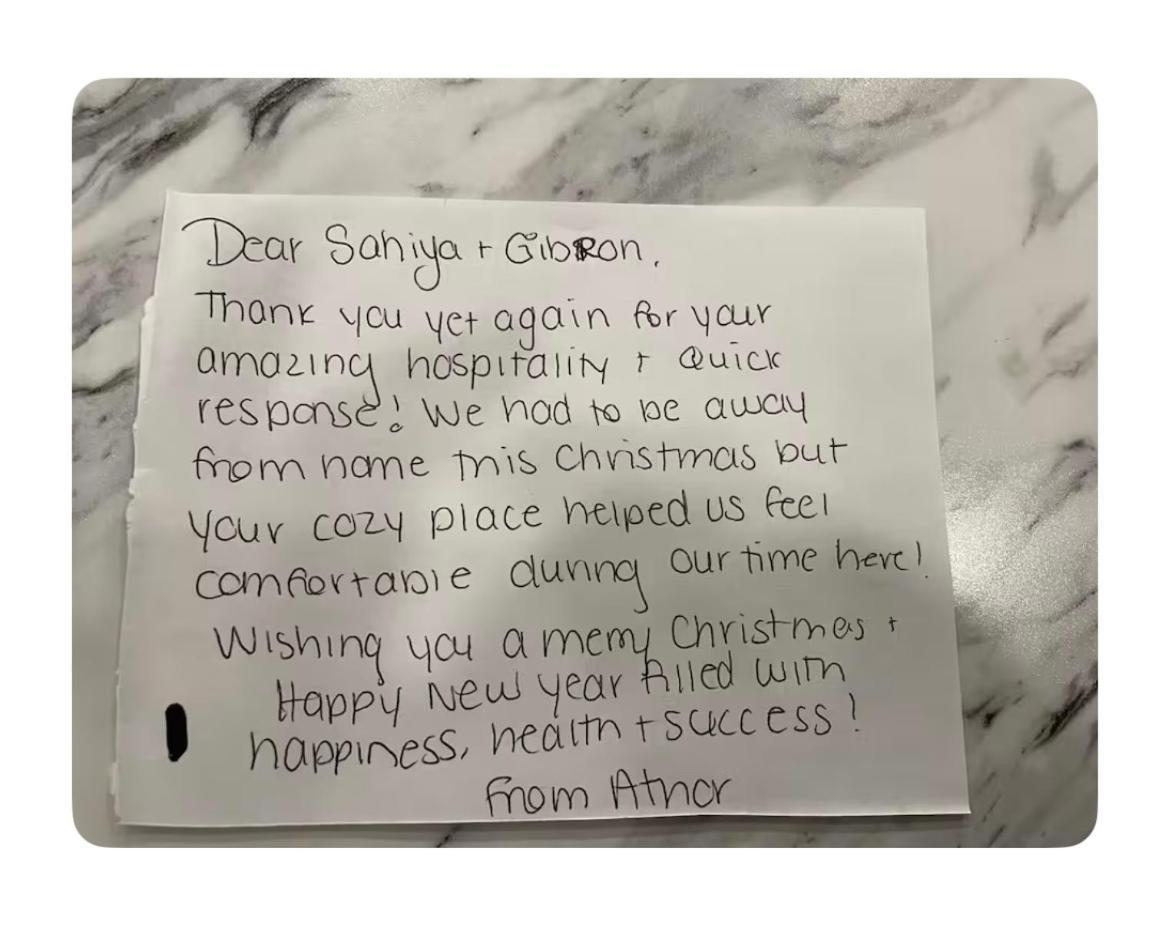 Dear Sahiya + Gibron,
Thank you yet again for your
amazing hospitality + Quick
response! We had to be away
from home this Christmas but
your cozy place helped us feel
comfortable during our time here!
Wishing you a merry Christmas +
Happy New year filled with
happiness, health + success!
from Athar